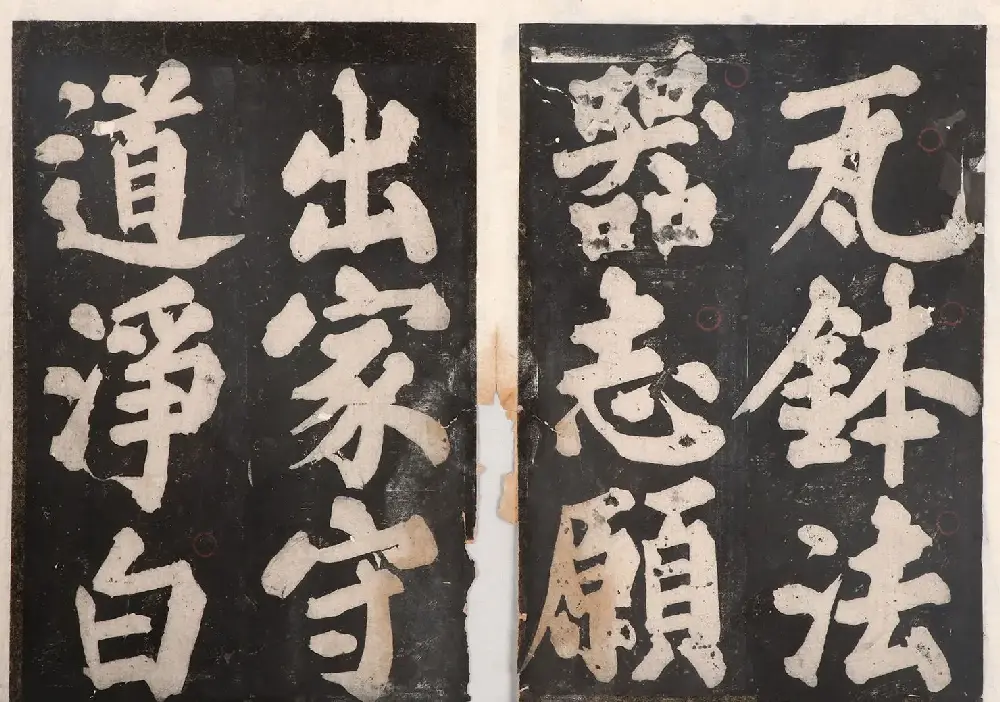 瓦鉢法
器志願
出家守
道淨白